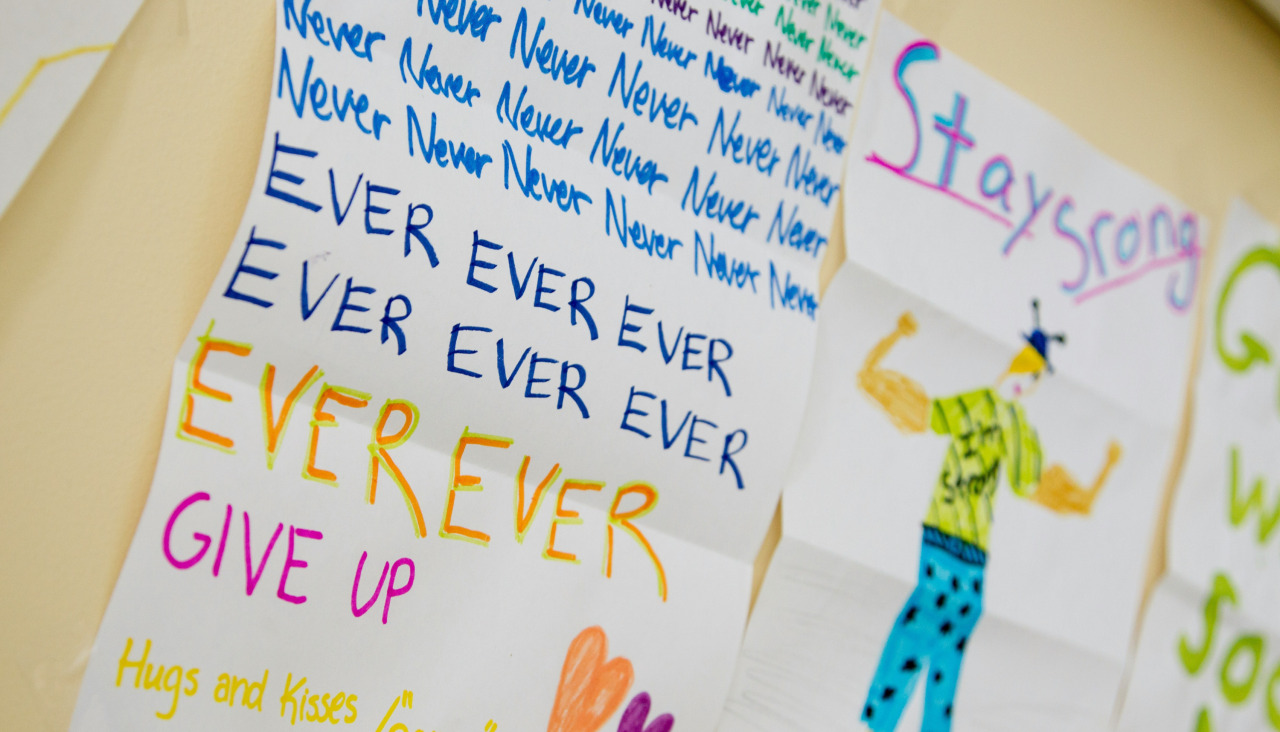 Never
Never Never
Never Never Never Never
Never Never Never Never Never
Never Never Never Never Never
Never Never Never Never Never Never
Never Never Never Never Never Never
EVER EVER EVER
EVER EVER EVER
EVER EVER
GIVE UP
Hugs and Kisses
Stay srong
I'm
strong
G